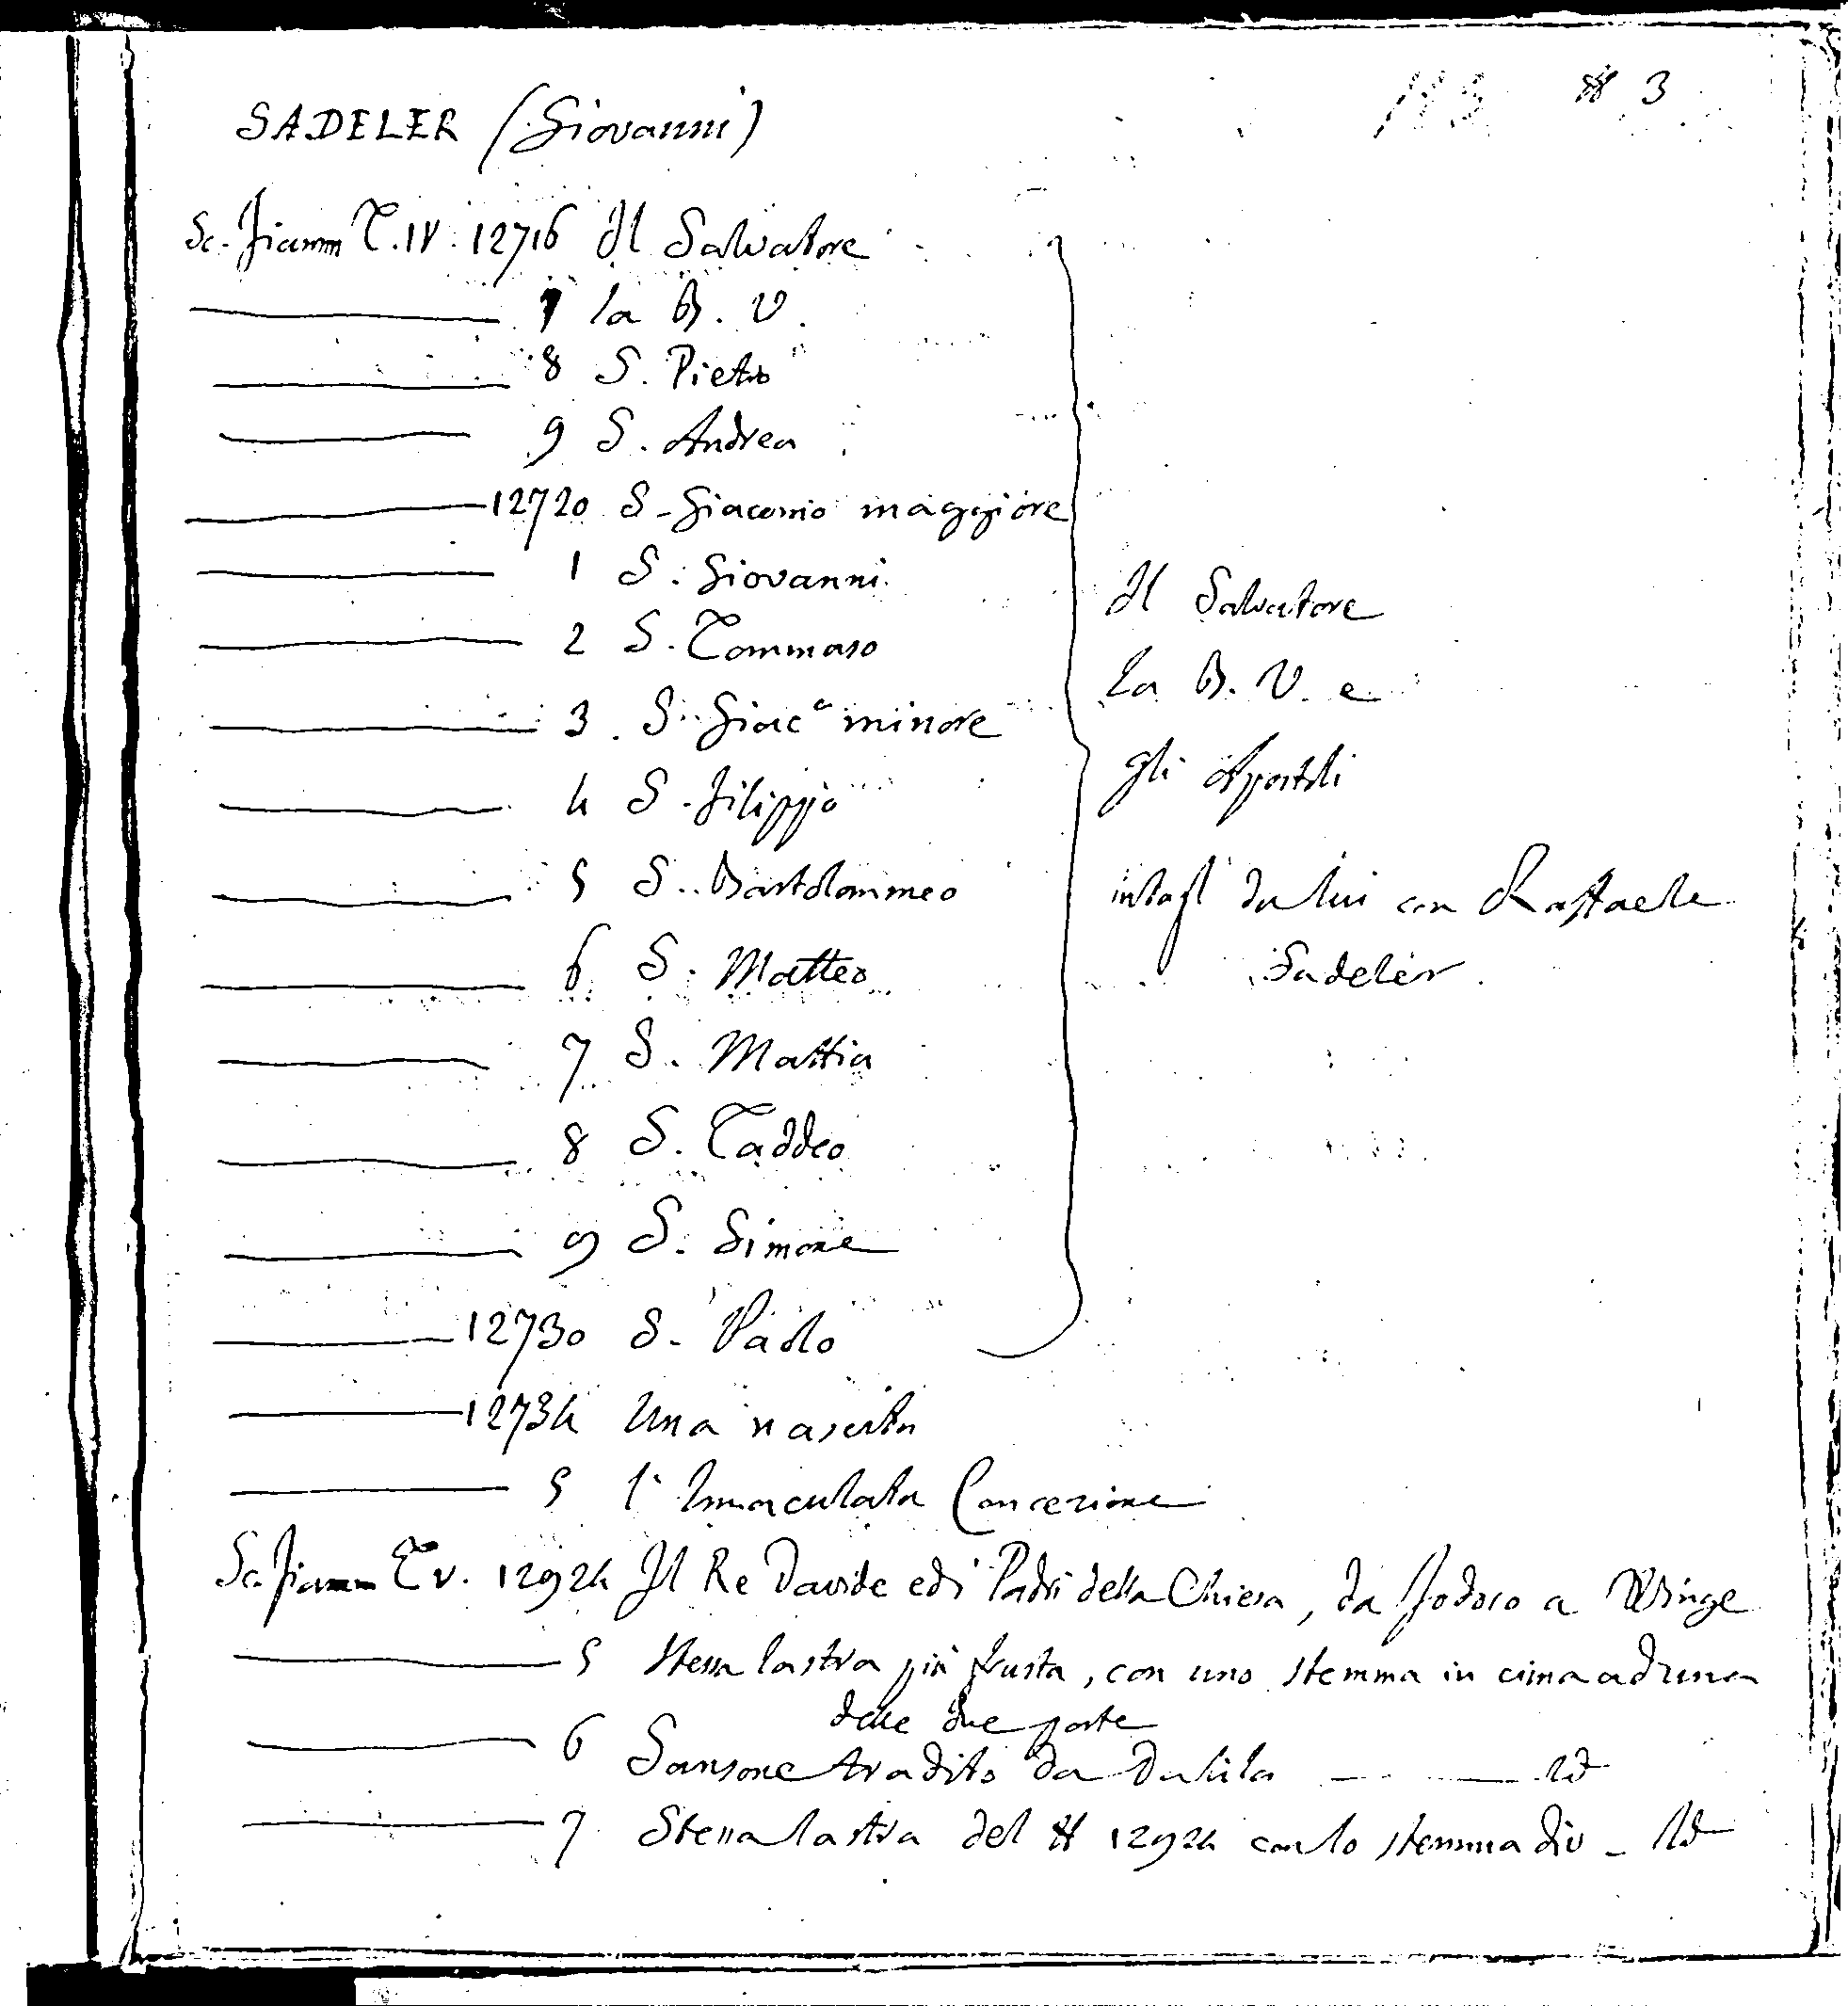 # 3
SADELER (Giovanni)
Sc. Fiamm T. IV. 12716 Il Salvatore
7 la B. V.
8 S. Pietro
9 S. Andrea
12720 S. Giacomo maggiore
1 S. Giovanni
2 S. Tommaso
3. S. Giac° minore
4 S. Filippo
5 S. Bartolommeo
6 S. Matteo
7 S. Mattia
8 S. Taddeo
9 S. Simone
12730 S. Paolo
Il Salvatore
la B. V. e
gli Apostoli
intagl da lui con Raffaele
Sadeler
12734 Una nascita
5 l'Immaculata Concezione
Sc. Fiamm T V. 12924 Il Re Davide ed i Padri della Chiesa, da Jodoco a Winge
5 Stessa lastra più frusta, con uno stemma in cima ad una
delle due porte
6 Sansone tradito da Dalila — — Id
7 Stessa lastra del # 12924 con lo stemma div - Id